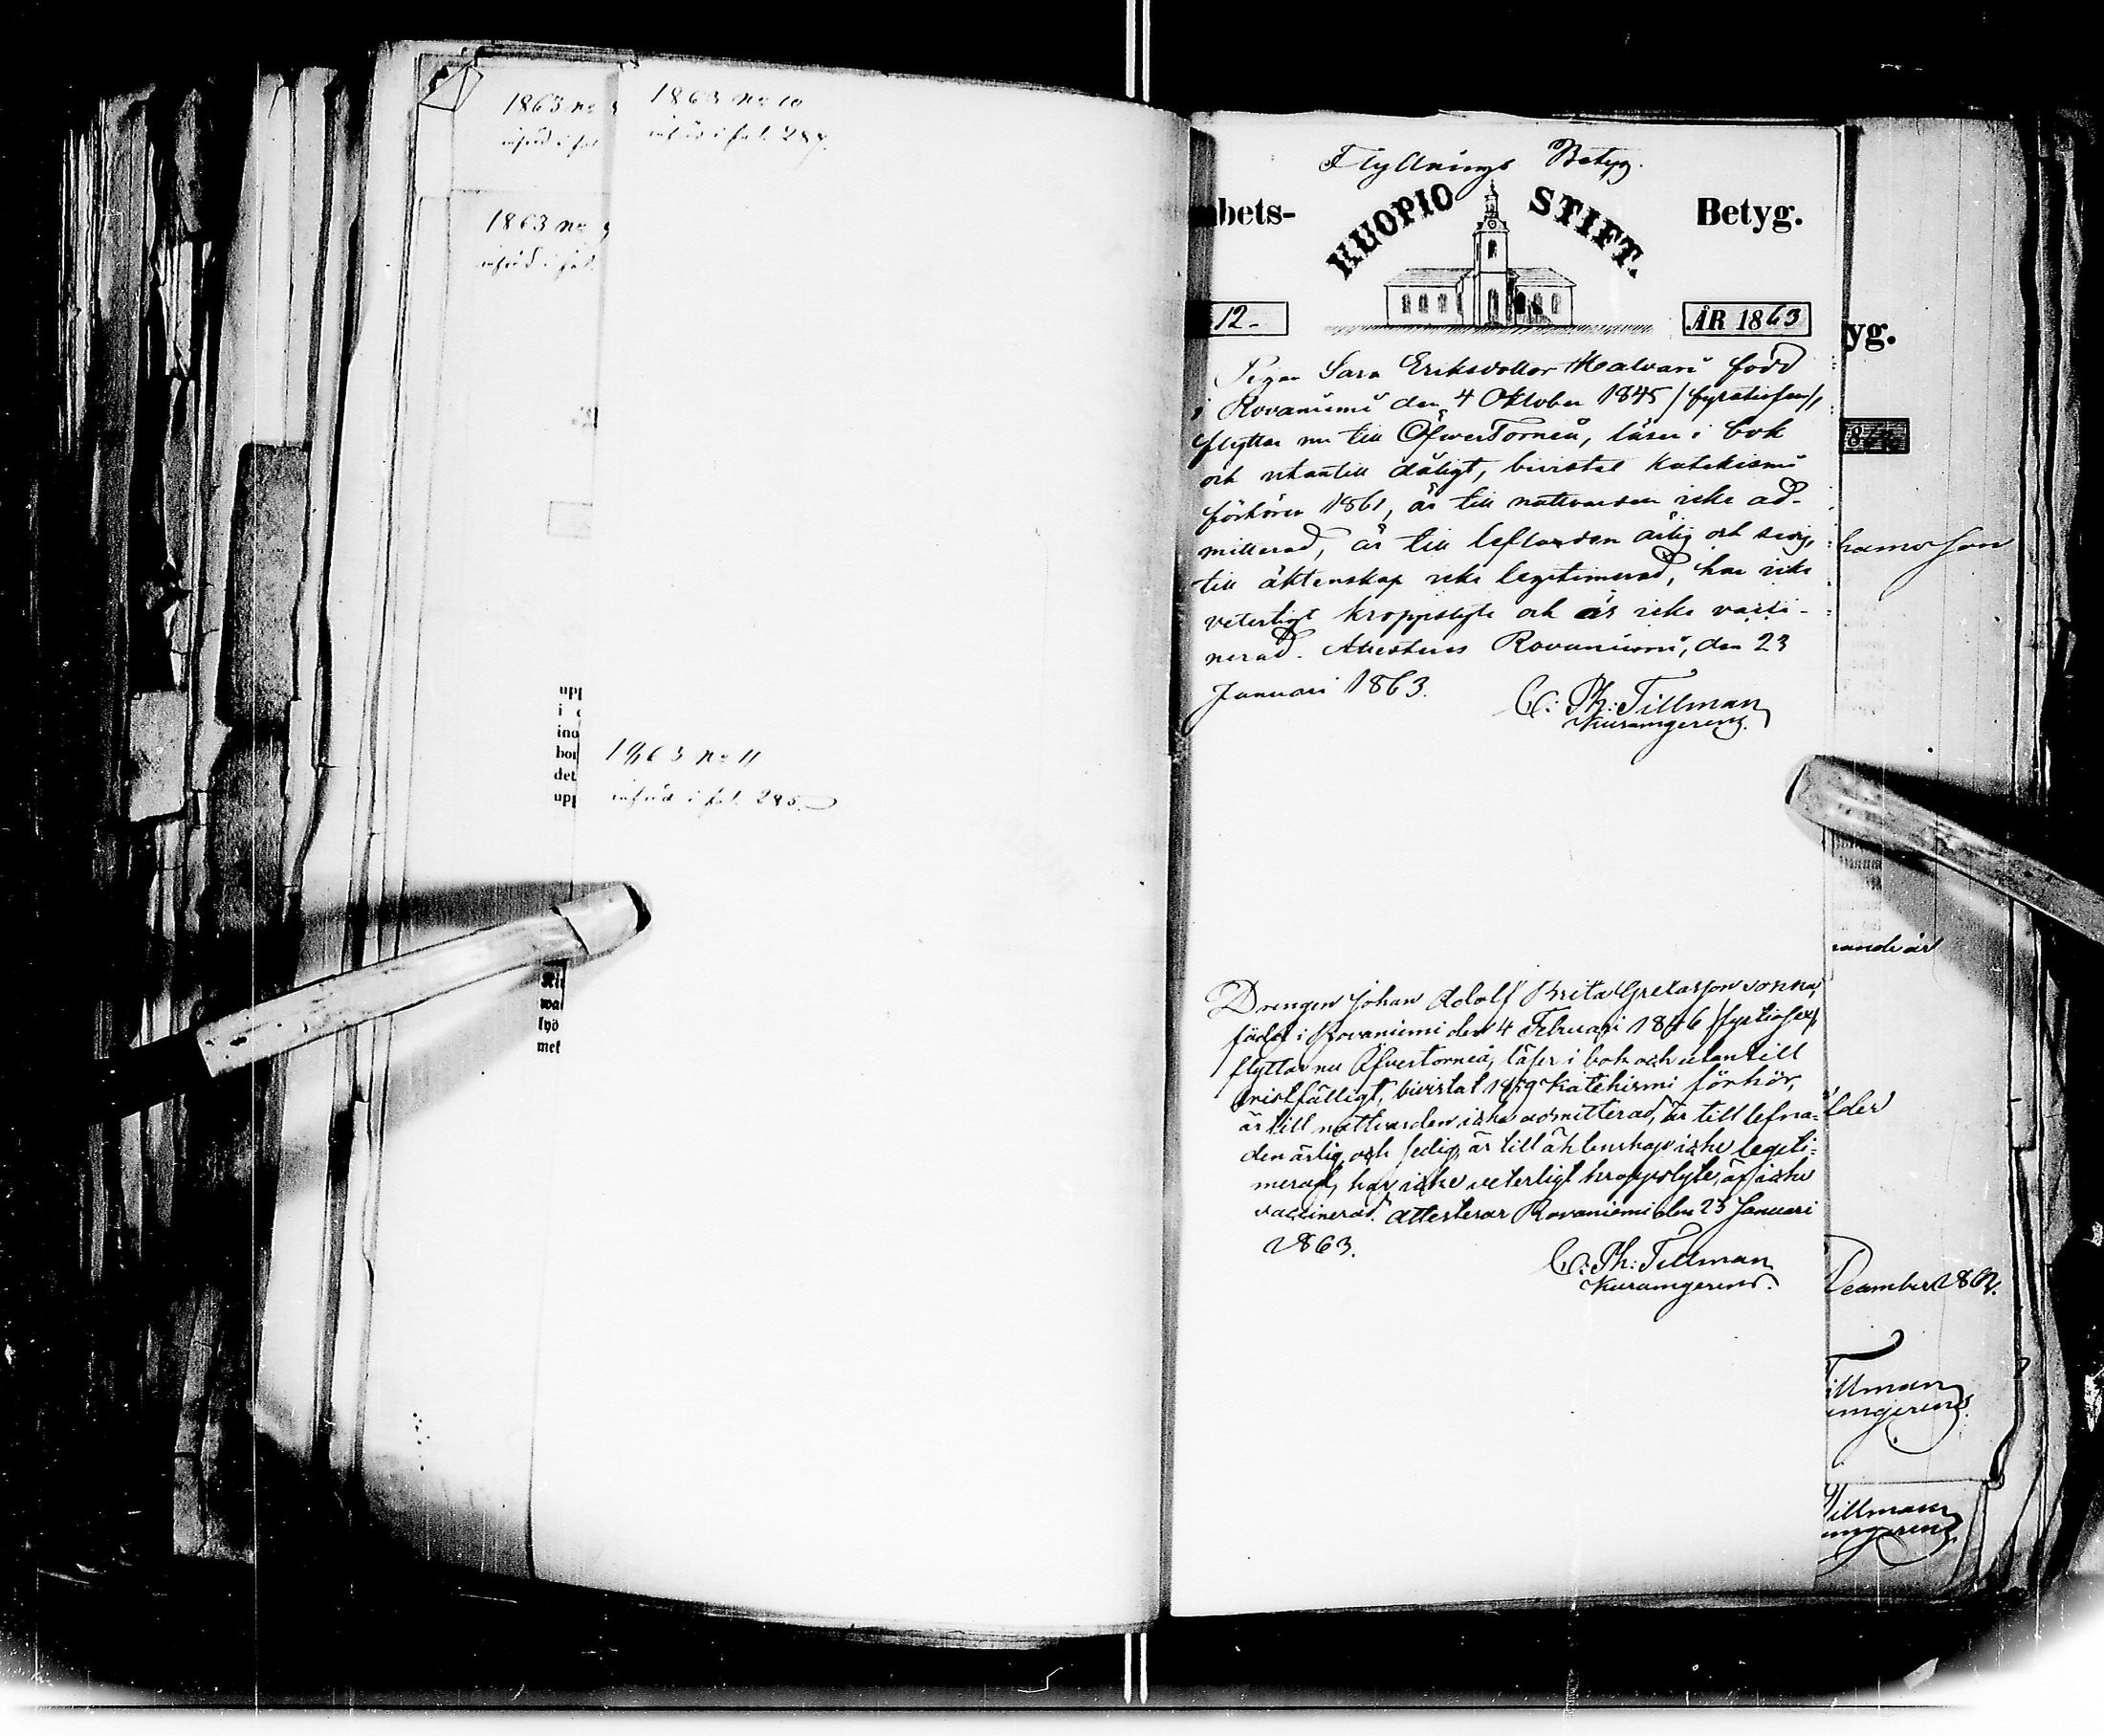 1863 no
införd i fol
1863 no 10
införd i fol. 287.
1863 no
införd i fol.
upp
i
ino
bor
det
upp
1863 no 11
införd i fol. 285.
wa
lyd
met
Flyttnings Betyg.
bets-
KUOPIO STIFT.
Betyg.
12.
ÅR 1863
Pigan Sara Eriksdotter Halvari född
i Rovaniemi den 4 Oktober 1845 /fyratiofem/,
flyttar nu till ÖfwerTorneå, läser i bok
och utantill dåligt, bivistat Katekismi
förhören 1861, är till nattvarden icke ad-
mitterad, är till lefnaden ärlig och
till äktenskap icke legitimerad, har icke
veterligt kroppslyte och är icke vacci-
nerad. Attesteras Rovaniemi, den 23
Januari 1863.
C: Ph: Tillman
Kuramgerens.
Drengen Johan Adolf Brita Gretasson
född i Rovaniemi den 4 Februari 1846 /fyrtiosex/,
flyttar nu Öfvertorneå, läser i bok och utantill
bristfälligt, bivistat 1859 Katekismi förhör,
är till nattvarden icke admitterad, är till lefna-
den ärlig och sedig, är till äktenskap icke legiti-
merad, har icke veterligt kroppslyte, är icke
vaccinerad. Attesterar Rovaniemi den 23 Januari
1863.
C: Ph: Tillman
Kuramgerens.
yg.
son
ande år
lder
December 1862.
Tillman
amgerens.
Tillman
amgerens.